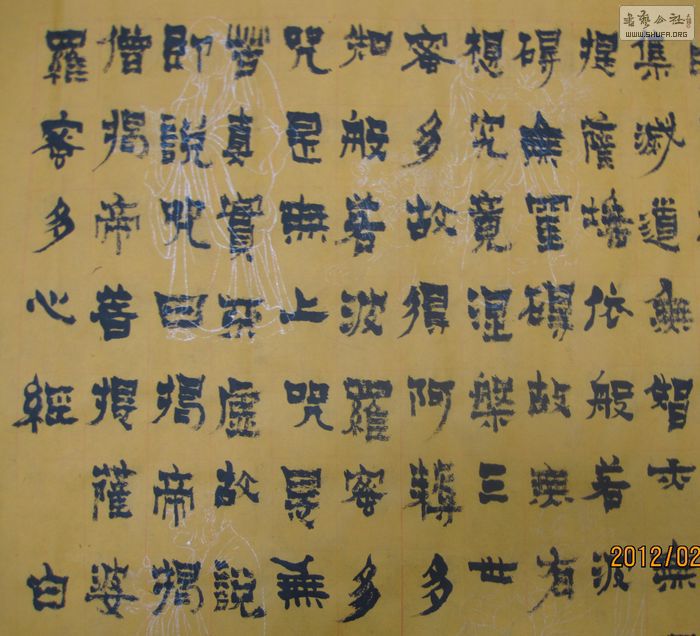 集滅道無智亦無
提薩埵依般若波
礙無罣礙故無有
想究竟涅槃三世
密多故得阿耨多
知般若波羅蜜多
咒是無上咒是無
苦真實不虛故說
即說咒曰揭帝揭
僧揭帝菩提薩婆
羅密多心經 白
書藝公社
WWW.SHUFA.ORG
2012/02